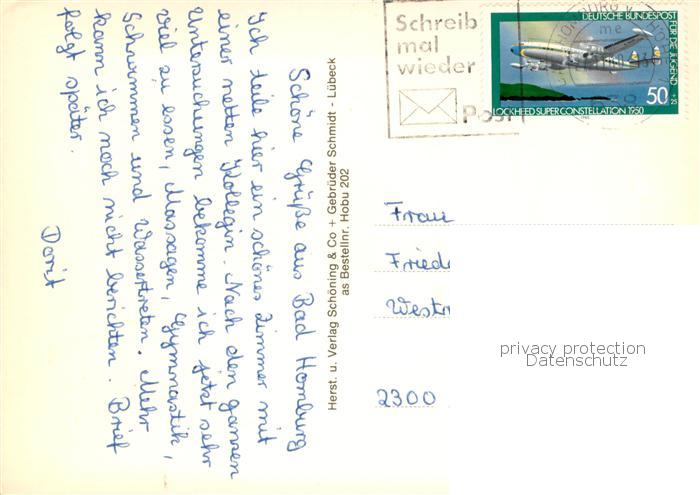 Schöne Grüße aus Bad Homburg
Ich teile hier ein schönes Zimmer mit
einer netten Kollegin. Nach den ganzen
Untersuchungen bekomme ich jetzt sehr
viel zu essen, Massagen, Gymnastik,
Schwimmen und Wassertreten. Mehr
kann ich noch nicht berichten. Brief
folgt später.
Dorit
Herst. u. Verlag Schöning & Co + Gebrüder Schmidt - Lübeck
as Bestellnr. Hobu 202
Schreib
mal
wieder
Post
DEUTSCHE BUNDESPOST
FÜR DIE JUGEND
50
+ 25
LOCKHEED SUPER CONSTELLATION 1950
Frau
Fried
Westr
2300
privacy protection
Datenschutz